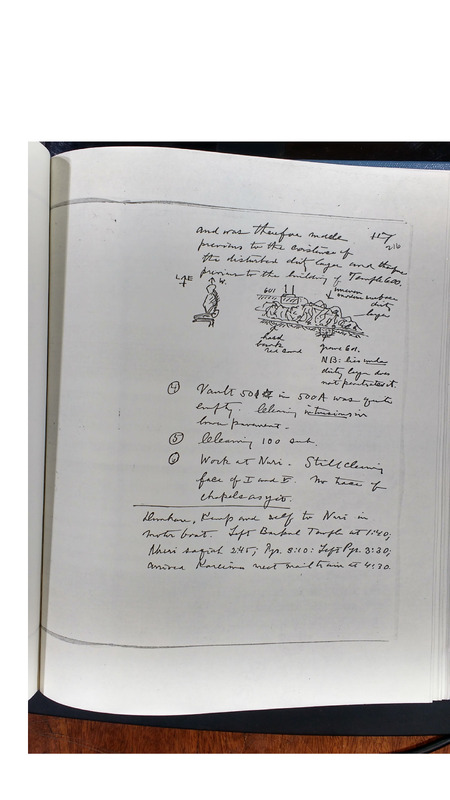 and was therefore made
previous to the existence of
the disturbed dirty layer and therefore
previous to the building of Temple 600.
216
W.
601
uneven
modern surface
dirty
layer
hard
bank
red sand
grave 601.
NB: lies under
dirty layer does
not penetrate it
④ Vault 501 in 500A was quite
empty. Clearing intrusions in
lower pavement.
⑤ Clearing 100 sub.
⑥ Work at Nuri. Still clearing
face of I and V. No trace of
chapels as yet.
Dunham, Kemp and self to Nuri in
motor boat. Left Barkal Temple at 1:40;
Nuri sagiah 2:45; Pyr. 3:10: Left Pyr. 3:30;
arrived Kareima meet mail train at 4:30.